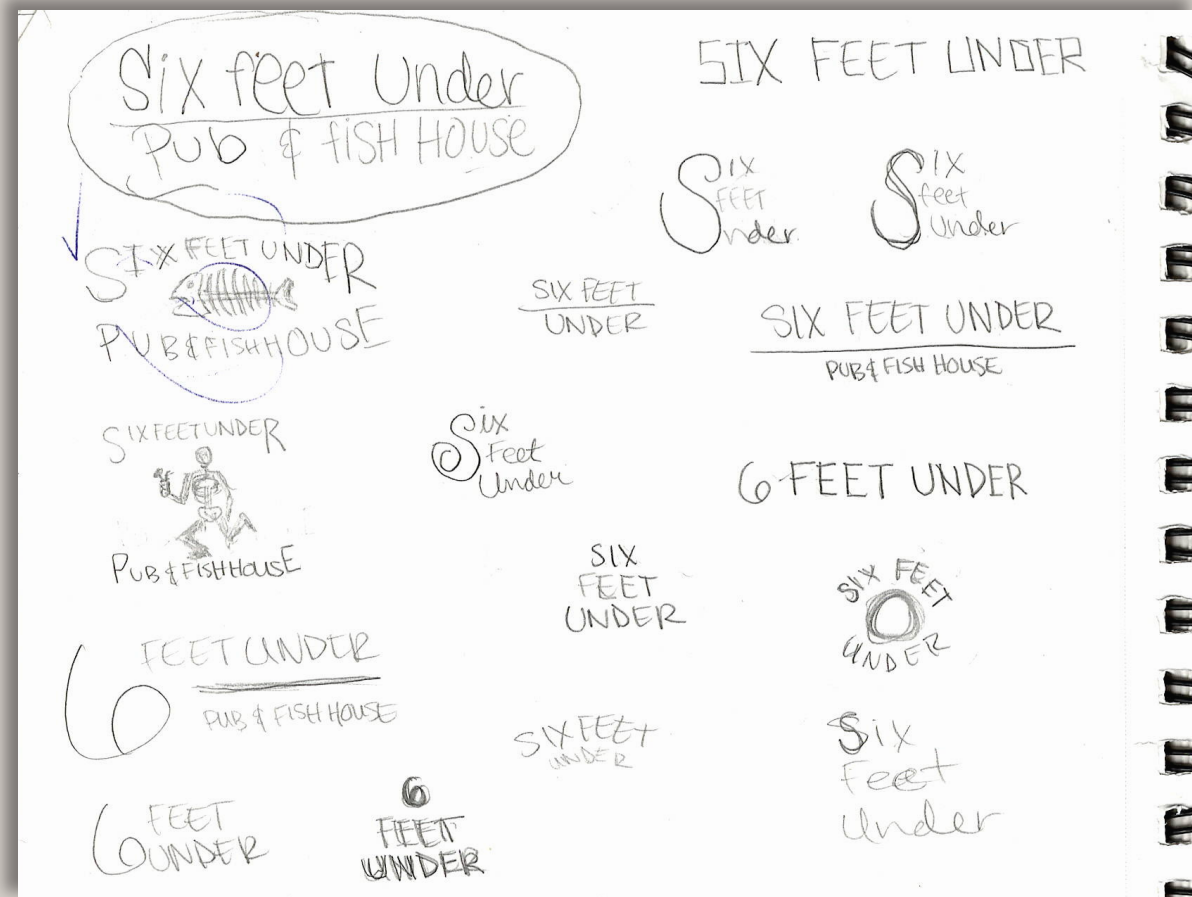 Six feet Under
Pub & fISH HOUSE
SIX FEET UNDER
SIX
FEET
Under
SIX
feet
Under
SIX FEET UNDER
PUB & FISH HOUSE
SIX FEET
UNDER
SIX FEET UNDER
PUB & FISH HOUSE
SIX FEET UNDER
PUB & FISH HOUSE
Six
Feet
Under
6 FEET UNDER
SIX
FEET
UNDER
SIX FEET
UNDER
6 FEET UNDER
PUB & FISH HOUSE
SIX FEET
UNDER
Six
Feet
Under
6 FEET
UNDER
6
FEET
UNDER